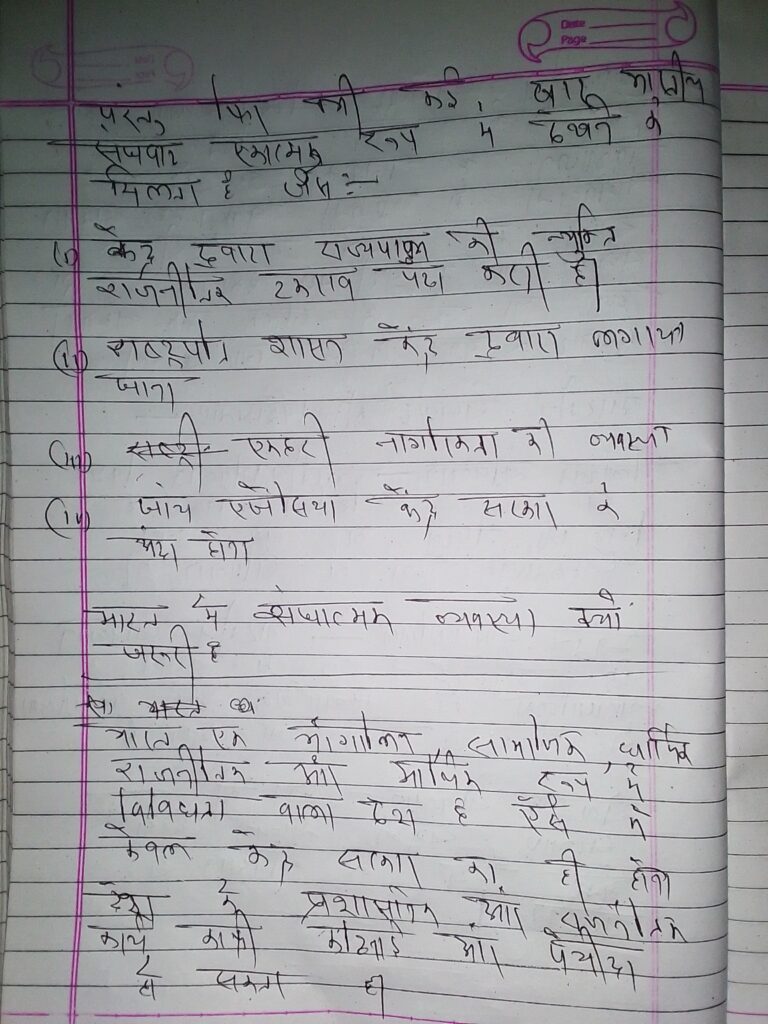 Date
Page
परन्तु फिर भी कई बार भारतीय
संघवाद एकात्मक रूप में देखने के
मिलता है जैसे :-
(i) केंद्र द्वारा राज्यपाल की नियुक्ति
राजनीतिक टकराव पैदा करती है।
(ii) राष्ट्रपति शासन केंद्र द्वारा लगाया
जाना
(iii) एकहरी नागरिकता की व्यवस्था
(iv) जांच एजेंसिया केंद्र सरकार के
होना
भारत में संघात्मक व्यवस्था क्यों
जरूरी है
भारत एक भौगोलिक, सामाजिक, धार्मिक
राजनीतिक और आर्थिक रूप में
विविधता वाला देश है ऐसे में
केवल केंद्र सरकार का ही होना
देश के प्रशासनिक और राजनीतिक
कार्य काफी कठिनाई और पेचीदा
हो सकता है।